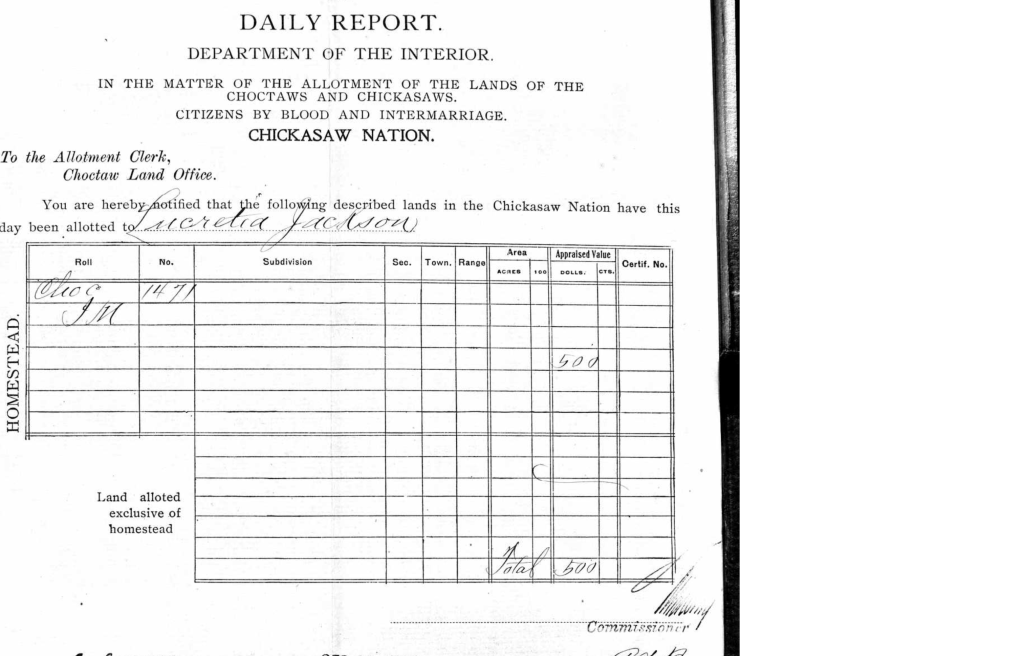 DAILY REPORT.
DEPARTMENT OF THE INTERIOR.
IN THE MATTER OF THE ALLOTMENT OF THE LANDS OF THE
CHOCTAWS AND CHICKASAWS.
CITIZENS BY BLOOD AND INTERMARRIAGE.
CHICKASAW NATION.
To the Allotment Clerk,
Choctaw Land Office.
You are hereby notified that the following described lands in the Chickasaw Nation have this
day been allotted to Lucretia Jackson
Roll No. Subdivision Sec. Town. Range Area ACRES 100 Appraised Value DOLLS. CTS. Certif. No.
Choc 1471
I M
HOMESTEAD.
500
Land alloted
exclusive of
homestead
Total 500
Commissioner